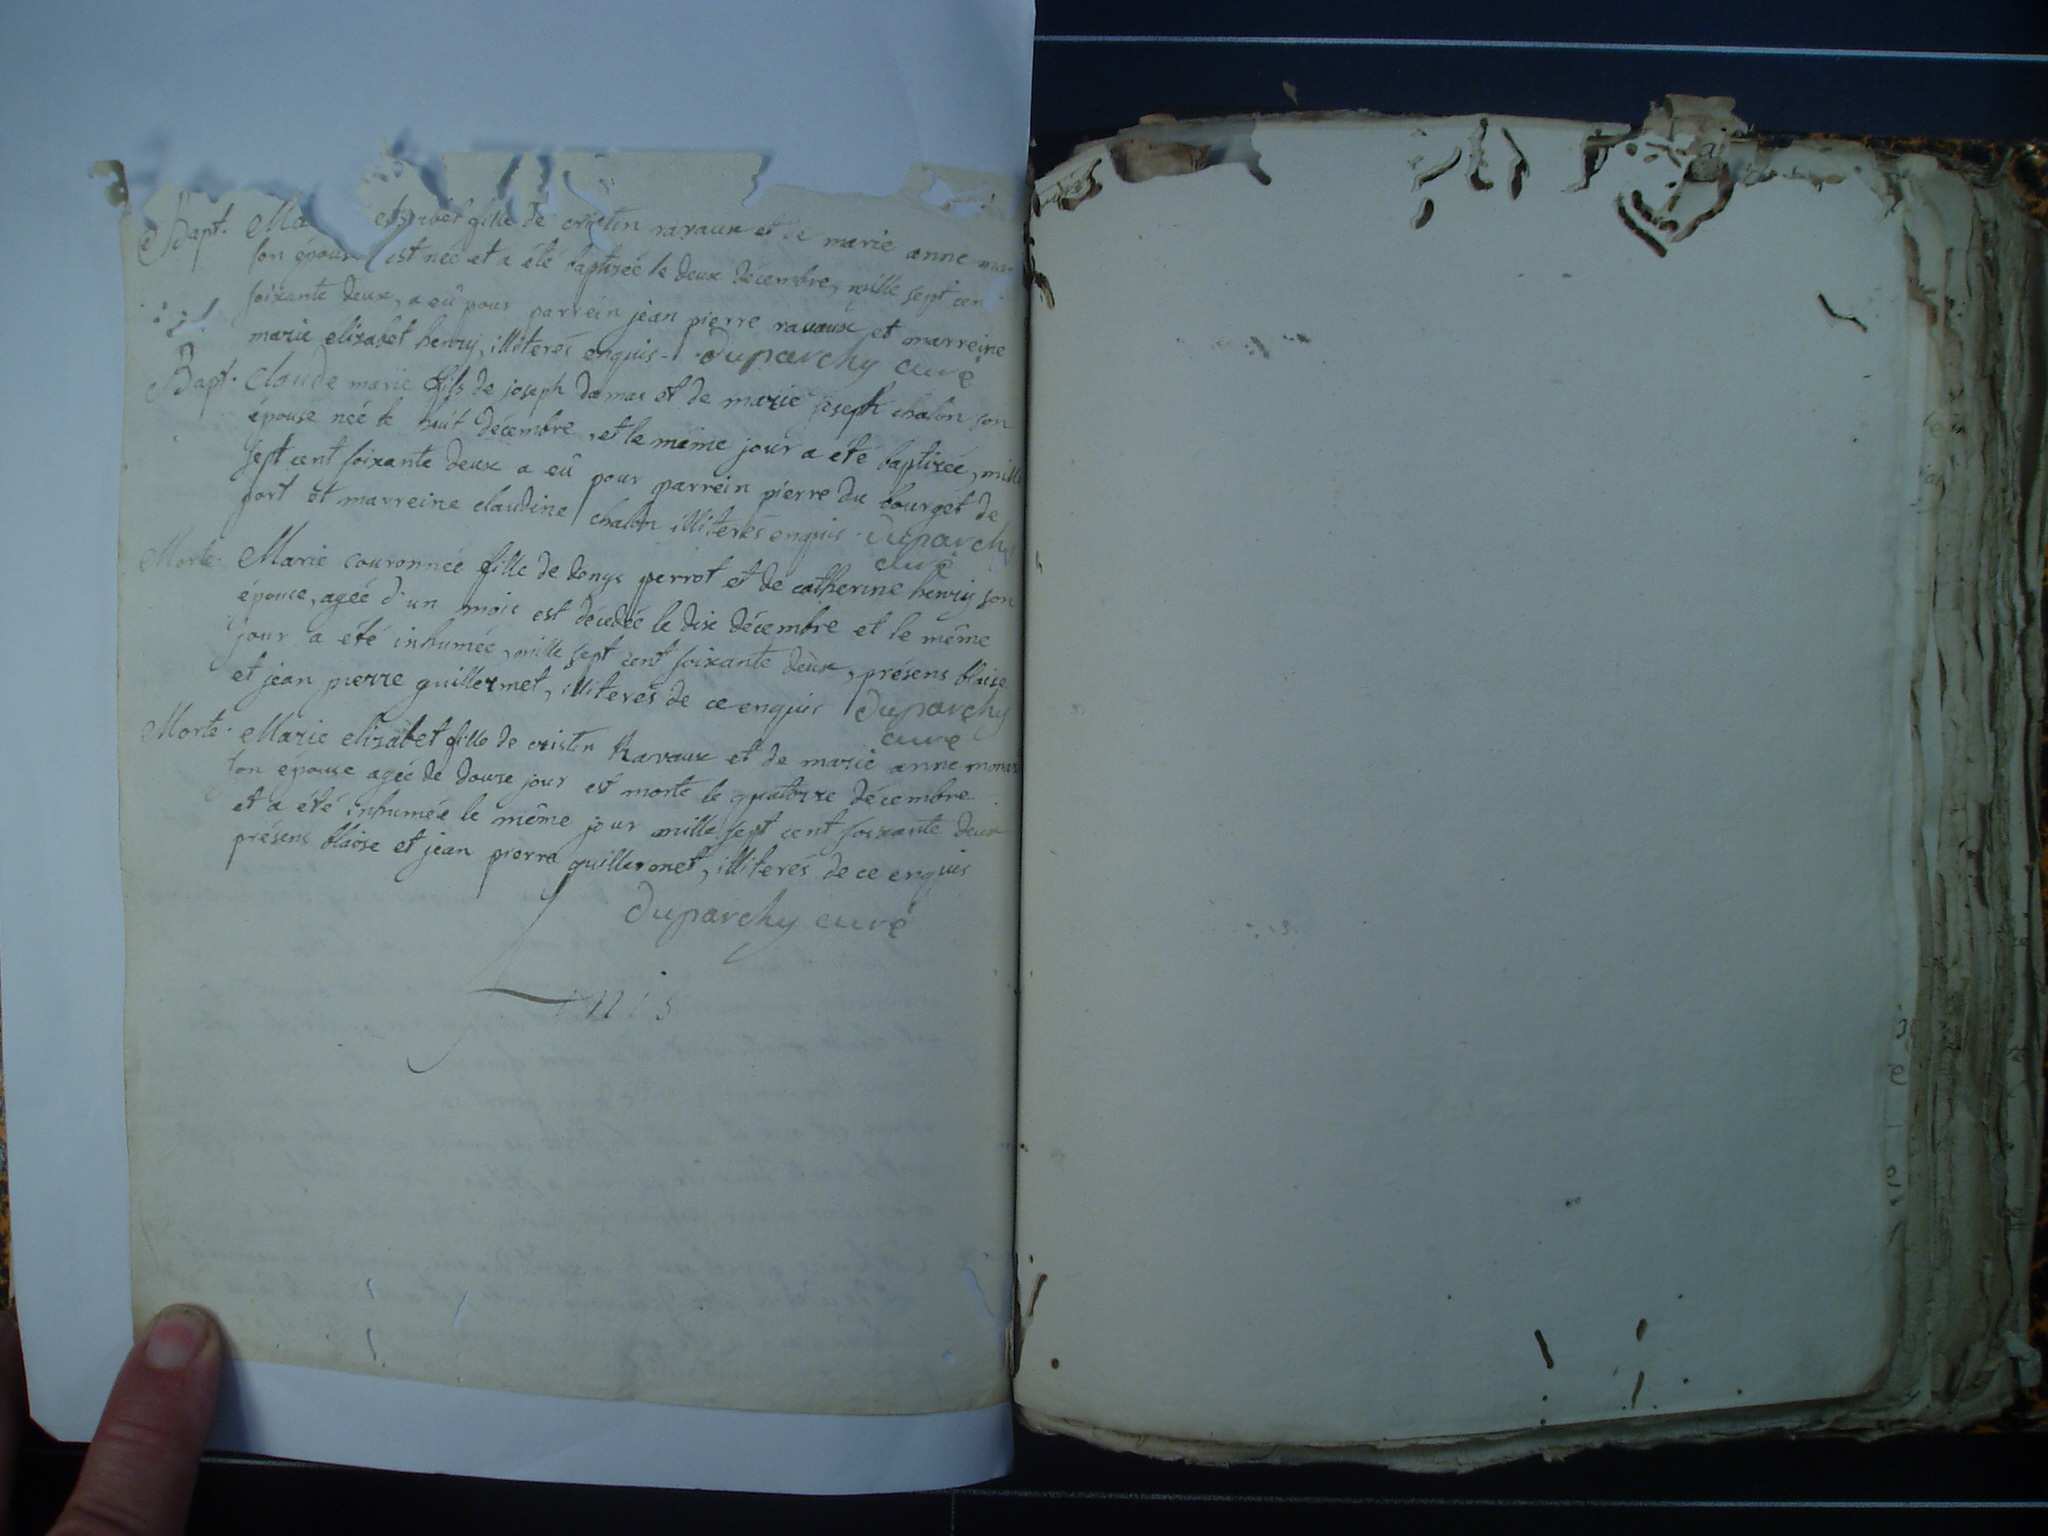 Bapt. Ma elisabet fille de cristin ravaux et de marie anne
son épouse est née et a été baptisée le deux décembre, mille sept cen
soixante deux, a eû pour parrein jean pierre ravaux et marreine
marie elizabet henry, illiteres enquis. Duparchy curé
Bapt. Claude marie fils de joseph damas et de marie joseph chalon son
épouse née le huit décembre, et le même jour a été baptisée, mille
sept cent soixante deux a eû pour parrein pierre du bourget de
port et marreine claudine chalon illiterés enquis. Duparchy
curé
Morte. Marie couronnée fille de denys perrot et de catherine henry son
épouse, agée d'un mois est décedée le dix décembre et le même
jour a été inhumée, mille sept cent soixante deux, présens blaise
et jean pierre guillermet, illiterés de ce enquis Duparchy
curé
Morte. Marie elizabet fille de cristin Ravaux et de marie anne
son épouse agée de douze jour est morte le quatorze décembre
et a été inhumée le même jour mille sept cent soixante deux
présens blaise et jean pierre guillermet, illiterés de ce enquis
Duparchy curé
Finis